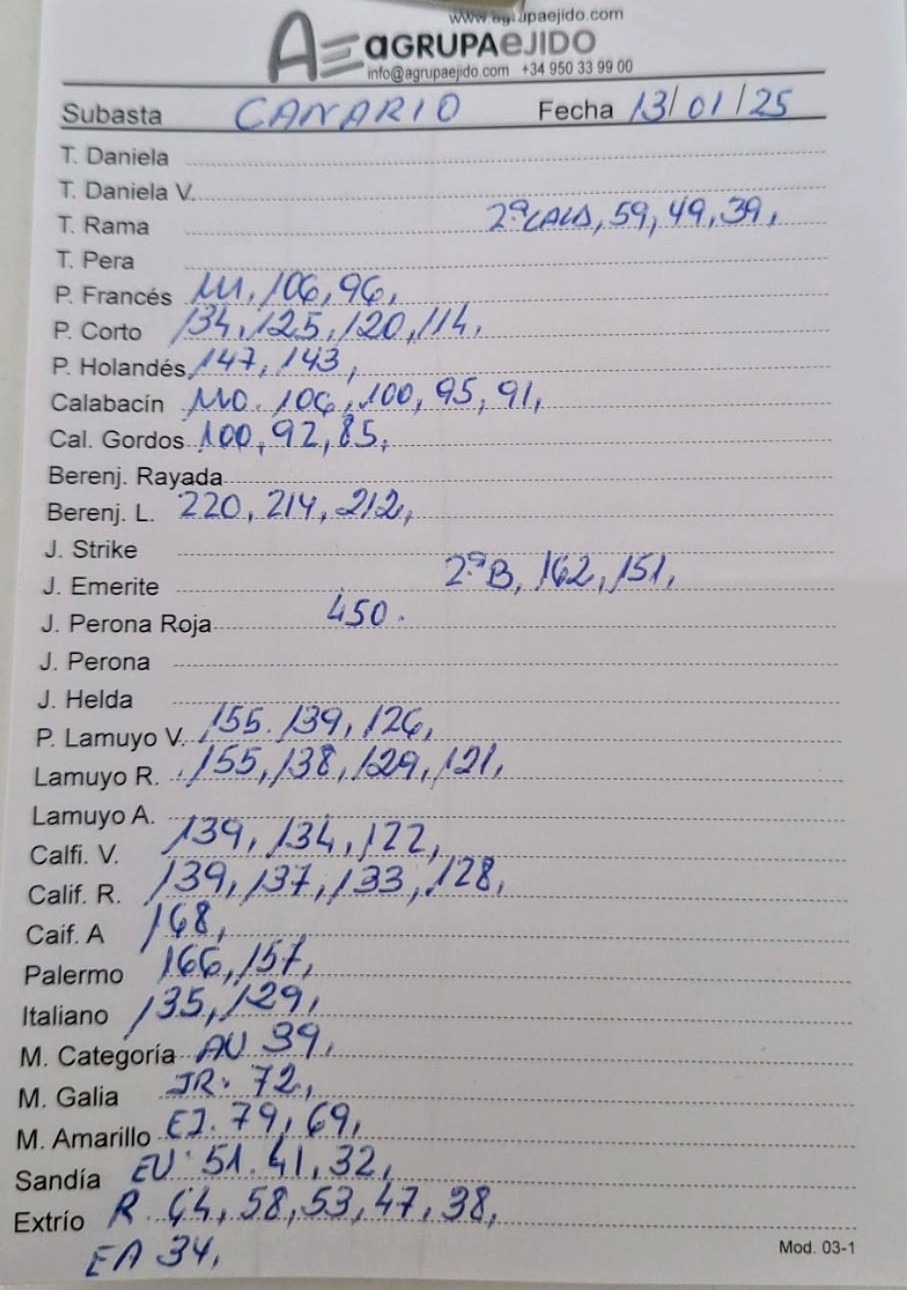 www.agrupaejido.com
AE aGRUPAeJIDO
info@agrupaejido.com +34 950 33 99 00
Subasta CANARIO Fecha 13/01/25
T. Daniela
T. Daniela V.
T. Rama 2ª CALD, 59, 49, 39,
T. Pera
P. Francés 111, 106, 96,
P. Corto 134, 125, 120, 114,
P. Holandés 147, 143,
Calabacín 110. 106, 100, 95, 91,
Cal. Gordos 100, 92, 85,
Berenj. Rayada
Berenj. L. 220, 214, 212,
J. Strike
J. Emerite 2ª B, 162, 151,
J. Perona Roja 450.
J. Perona
J. Helda
P. Lamuyo V. 155. 139, 126,
Lamuyo R. 155, 138, 129, 121,
Lamuyo A.
Calfi. V. 139, 134, 122,
Calif. R. 139, 137, 133, 128,
Caif. A 168,
Palermo 166, 157,
Italiano 135, 129,
M. Categoría AU 39,
M. Galia JR. 72,
M. Amarillo EJ. 79, 69,
Sandía EU. 51. 41, 32,
Extrío R. 64, 58, 53, 47, 38,
EA 34,
Mod. 03-1